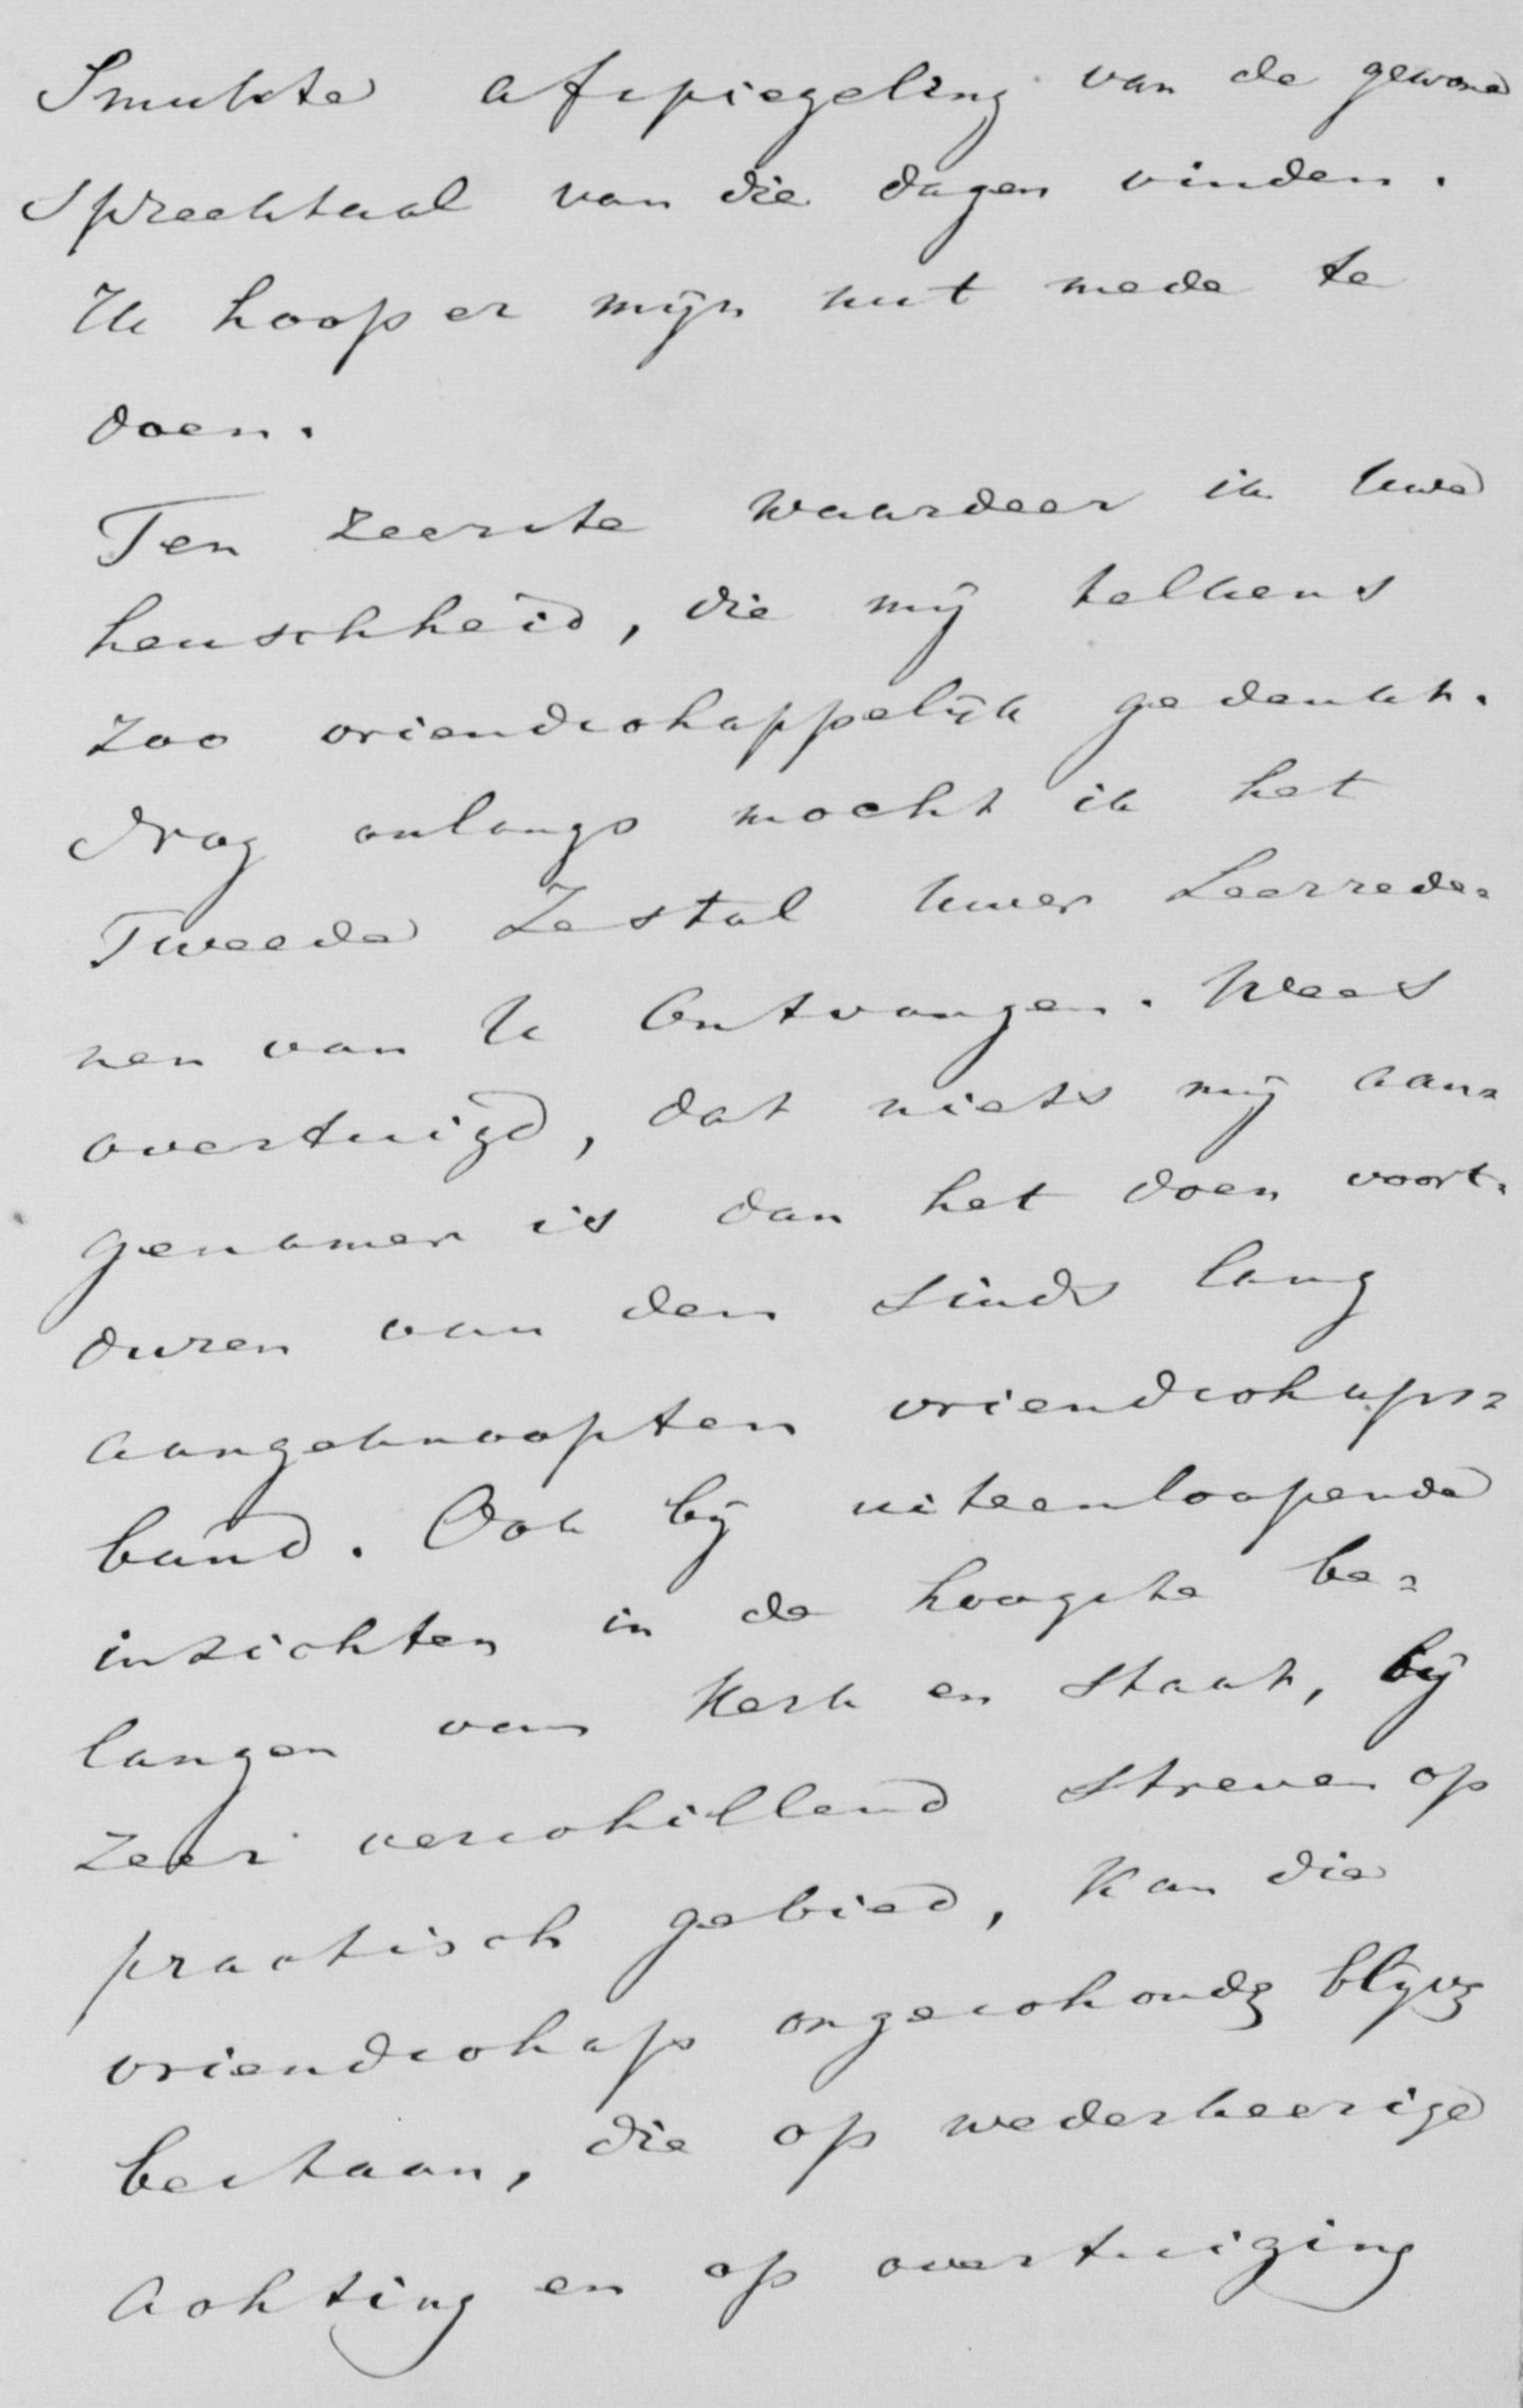 Smukte afspiegeling van de gewone
spreektaal van die dagen vinden.
Ik hoop er mijn nut mede te
doen.
Ten zeerste waardeer ik Uwe
heuschheid, die mij telkens
zoo vriendschappelijk gedenkt.
Nog onlangs mocht ik het
Tweede Zestal Uwer Leerrede=
nen van U ontvangen. Wees
overtuigd, dat niets mij aan=
genamer is dan het doen voort=
duren van den sinds lang
aangeknoopten vriendschaps=
band. Ook bij uiteenloopende
inzichten in de hoogste be=
langen van Kerk en Staat, bij
zeer verschillend streven op
practisch gebied, kan die
vriendschap ongeschondg blijvg
bestaan, die op wederkeerige
achting en op overtuiging